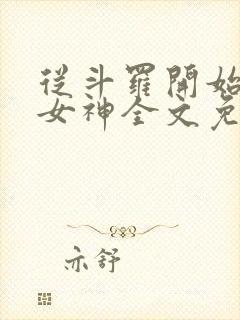 從斗羅開始
女神全文免
亦舒